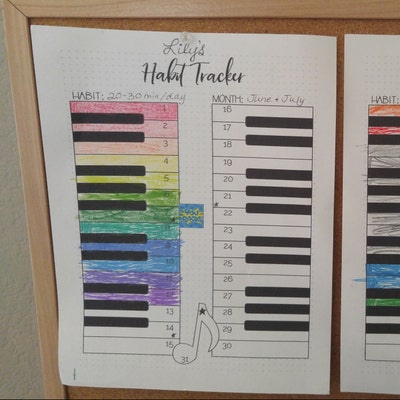 Lily's
Habit Tracker
HABIT: 20-30 min/day
MONTH: June + July
1
2
3
4
5
6
7
13
14
15
16
17
18
19
20
21
22
23
24
25
26
27
28
29
30
31
HABIT: